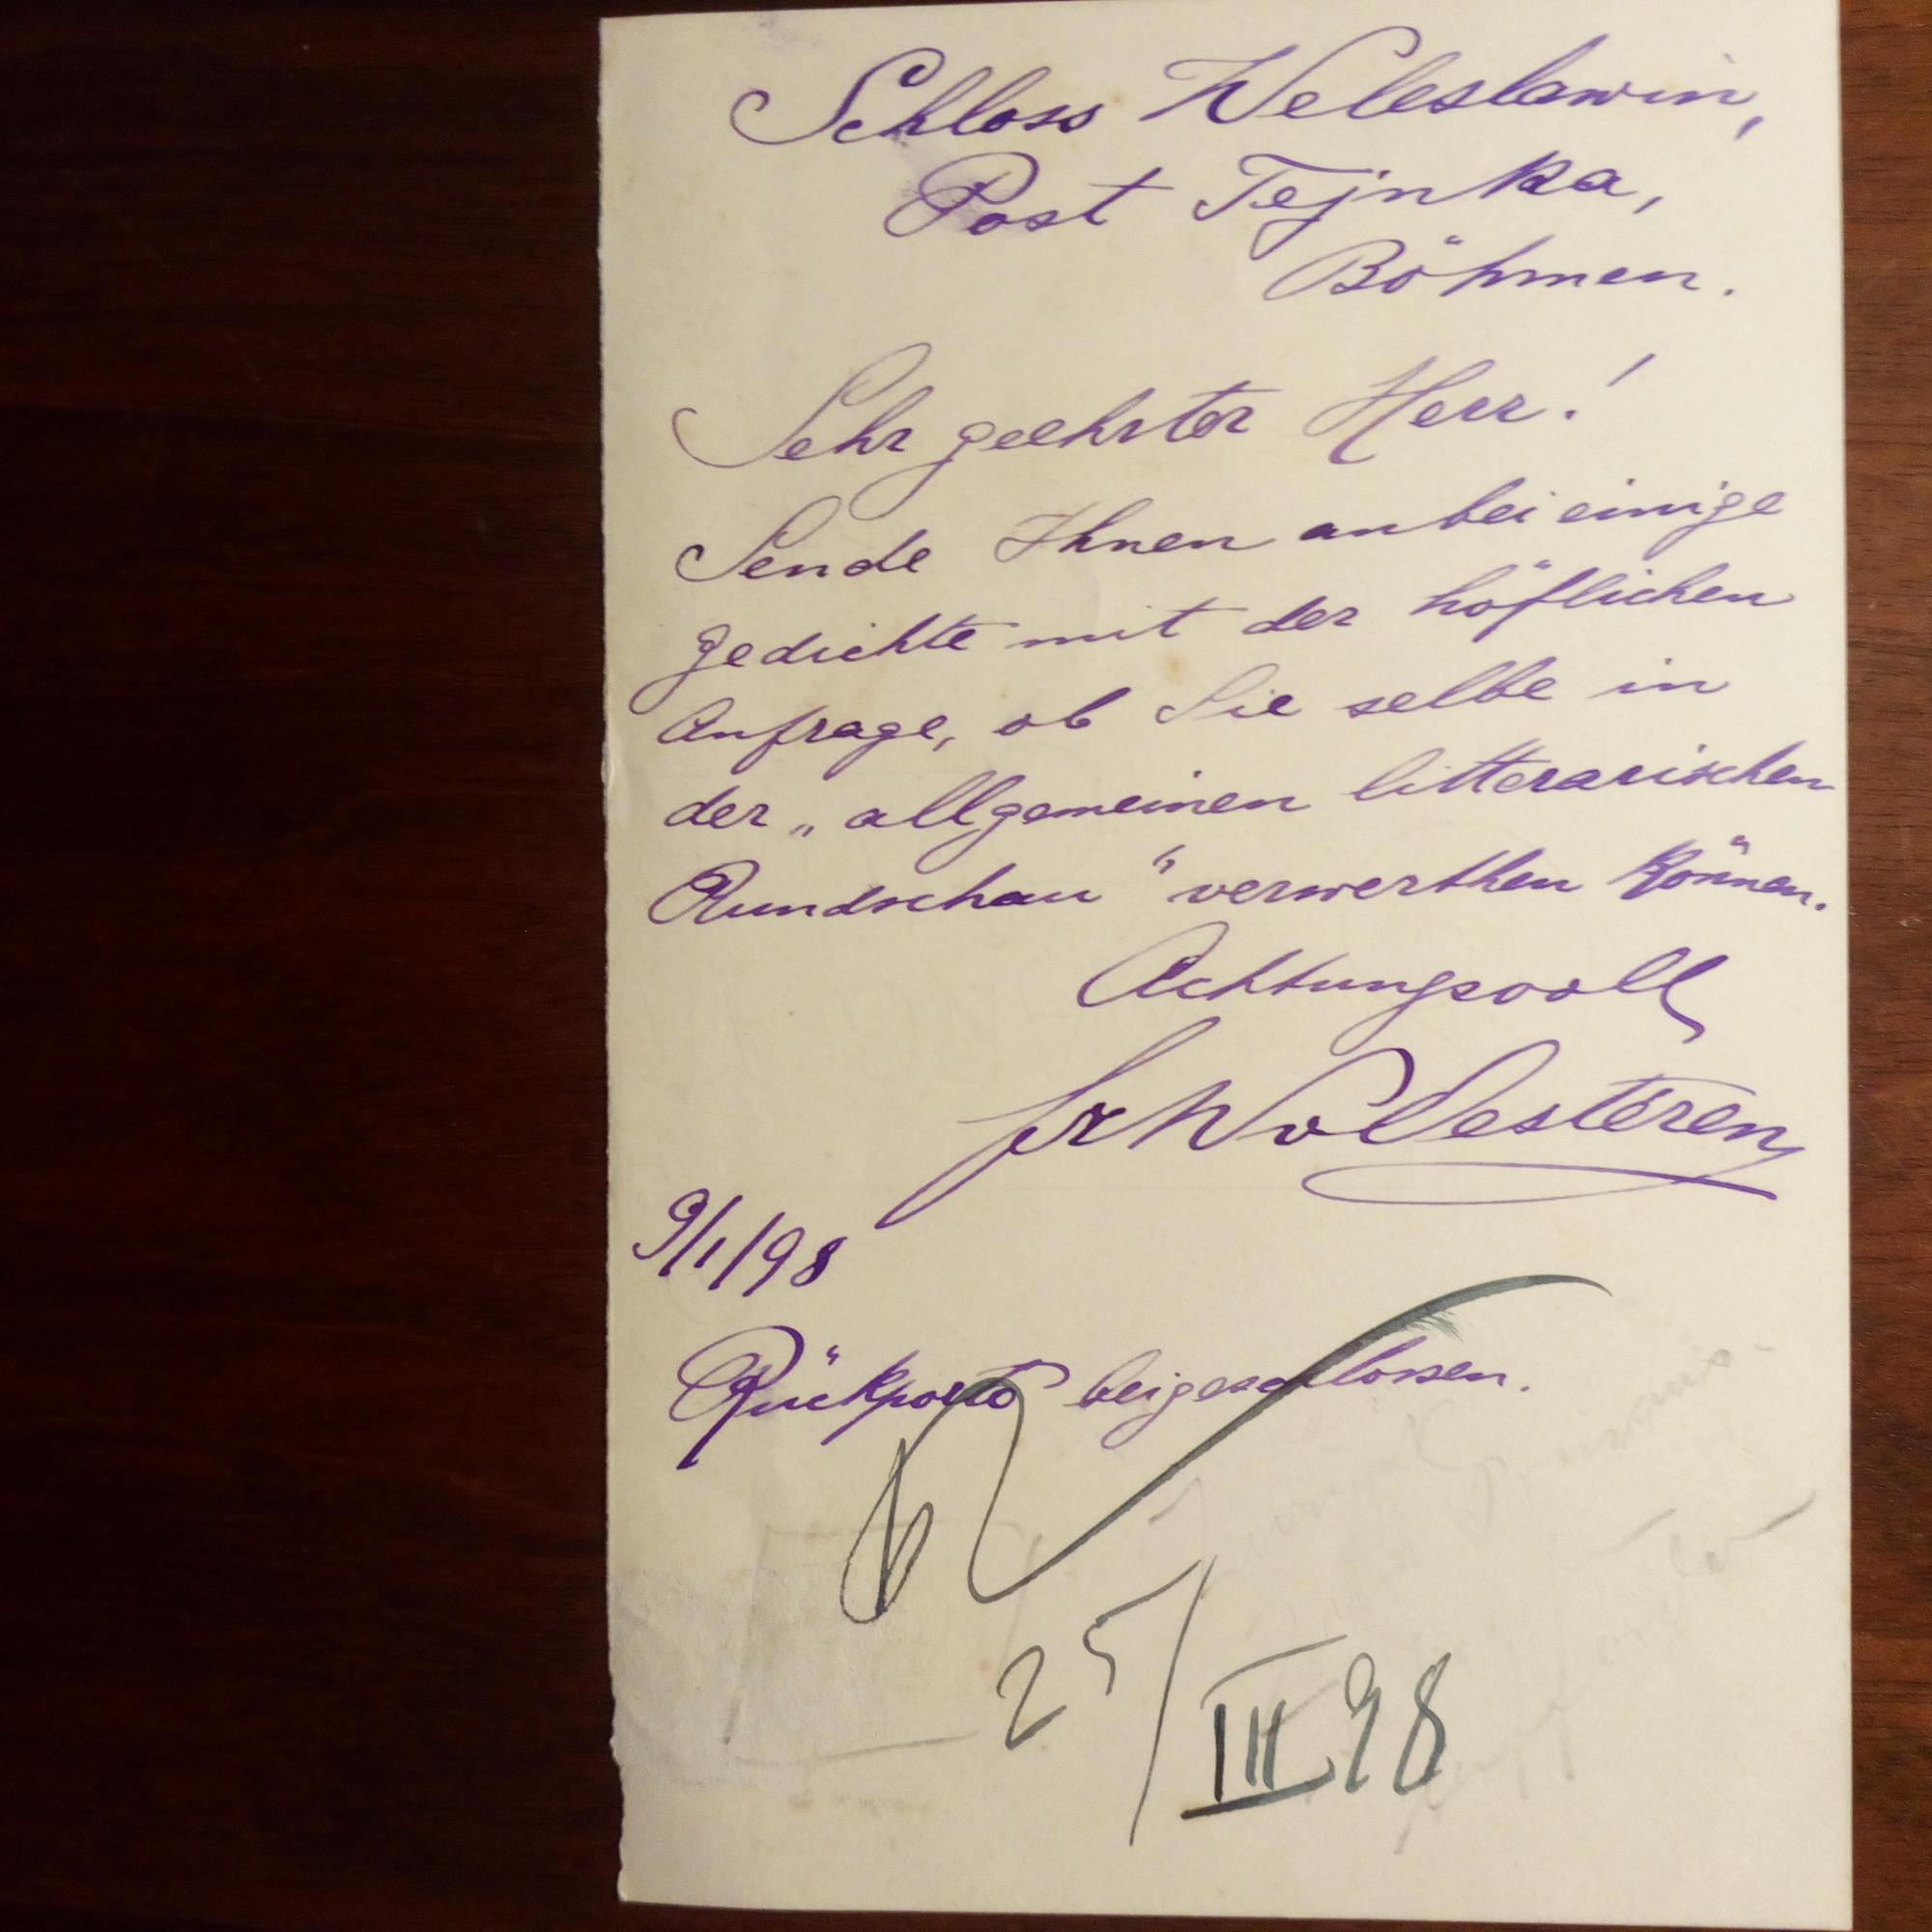 Schloss Weleslawin,
Post Tejnka,
Böhmen.
Sehr geehrter Herr!
Sende Ihnen anbei einige
Gedichte mit der höflichen
Anfrage, ob Sie selbe in
der „allgemeinen litterarischen
Rundschau“ verwerthen können.
Achtungsvoll
Fr W v Oesteren
9/1/98
Rückporto beigeschlossen.
25/III 98